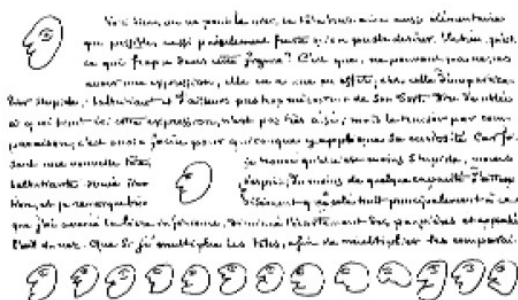 Voici bien, on ne peut le nier, la tête humaine aussi élémentaire
que possible, aussi puérilement fruste qu'on puisse le désirer. Eh bien, qu'est
ce qui frappe dans cette figure? C'est que, ne pouvant pas ne pas
avoir une expression, elle en a une en effet; c'est celle d'un particu-
lier stupide, balbutiant et d'ailleurs pas trop mécontent de son sort. Dire d'emblée
à quoi tient ici cette expression, n'est pas très aisé; mais le trouver par com-
paraison, c'est chose facile pour quiconque y applique sa curiosité. Car fai-
sant une nouvelle tête, je trouve qu'elle est moins stupide, moins
balbutiante, douée sinon d'esprit, du moins de quelque capacité d'atten-
tion, et je remarque que cela tient principalement à ce
que j'ai avancé la lèvre inférieure, diminué l'écartement des paupières et approché
l'œil du nez. Que si je multiplie les têtes, afin de multiplier les comparai-